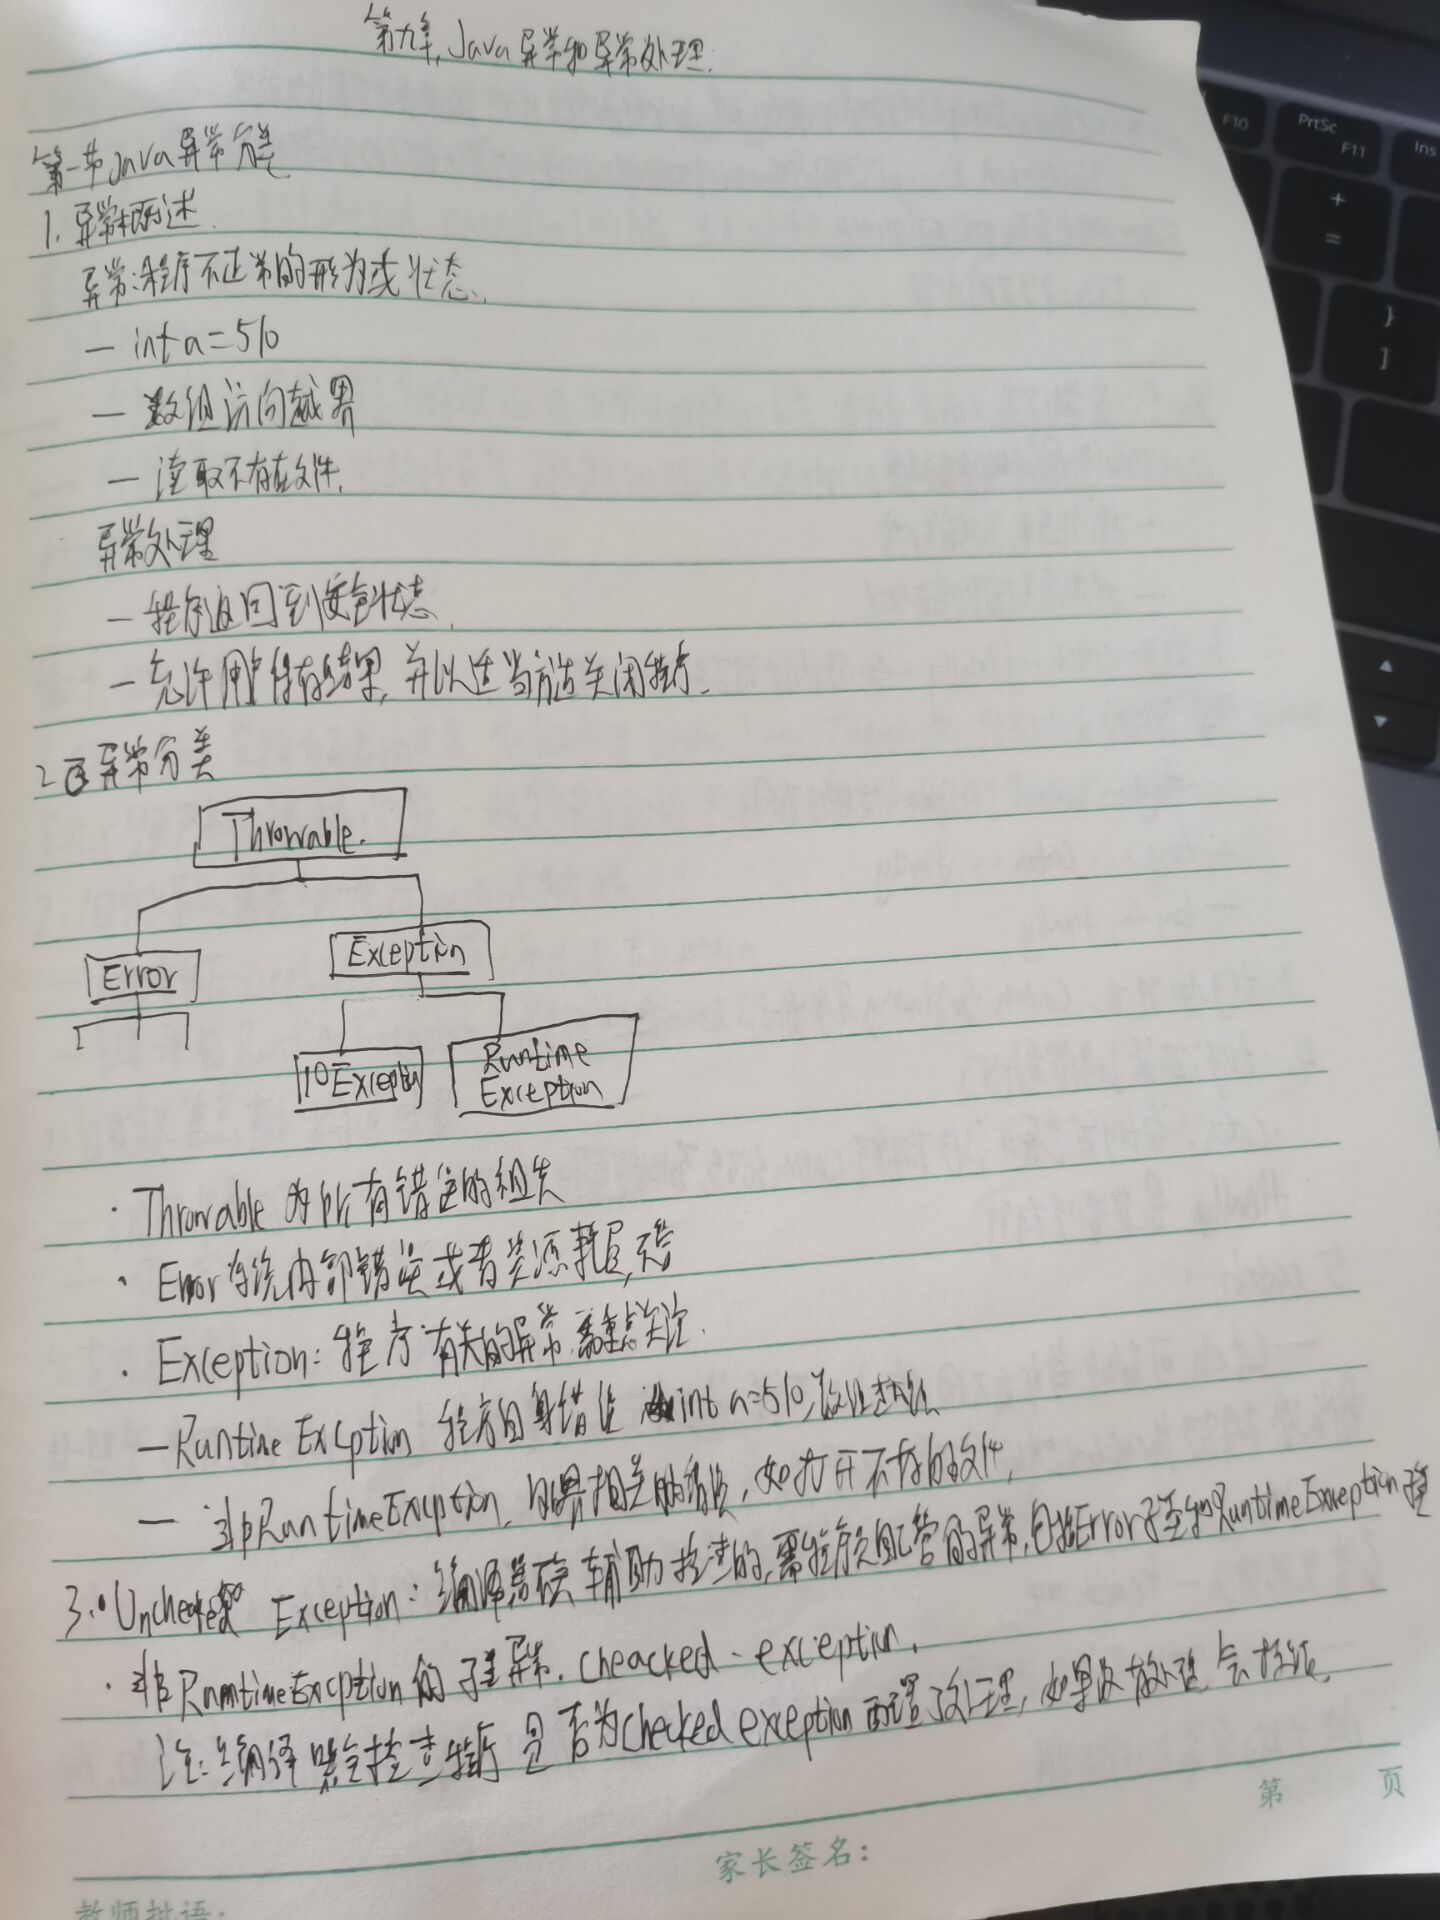 第九章，Java异常和异常处理.
第一节Java异常分类
1. 异常概述.
异常:程序不正常的形为或状态.
— int a=5/0
— 数组访问越界
— 读取不存在文件.
异常处理
— 程序返回到安全状态.
— 允许用户保存结果, 并以适当方法关闭程序.
2 异常分类
Throwable.
Error
Exception
IOExceptin
Runtime
Exception
· Throwable 为所有错误的祖先
· Error 系统内部错误或者资源耗尽,
· Exception: 程序有关的异常.需重点关注.
— Runtime Excption 程序自身错误 int a=5/0,数组越界
— 非RuntimeExcption. 外界相关的错误, 如打开不存的文件,
3. Unchecked Exception: 编译器 辅助检查的,需程序员 管的异常,包括Error子类和RuntimeException子类
· 非RuntimeExcption的子类异常. cheacked - exception.
注:编译器会检查程序是否为checked exception配置了处理, 如果没有处理.会报错.
第 页
家长签名:
教师批语:
F10
PrtSc
F11
Ins
+
=
}
]